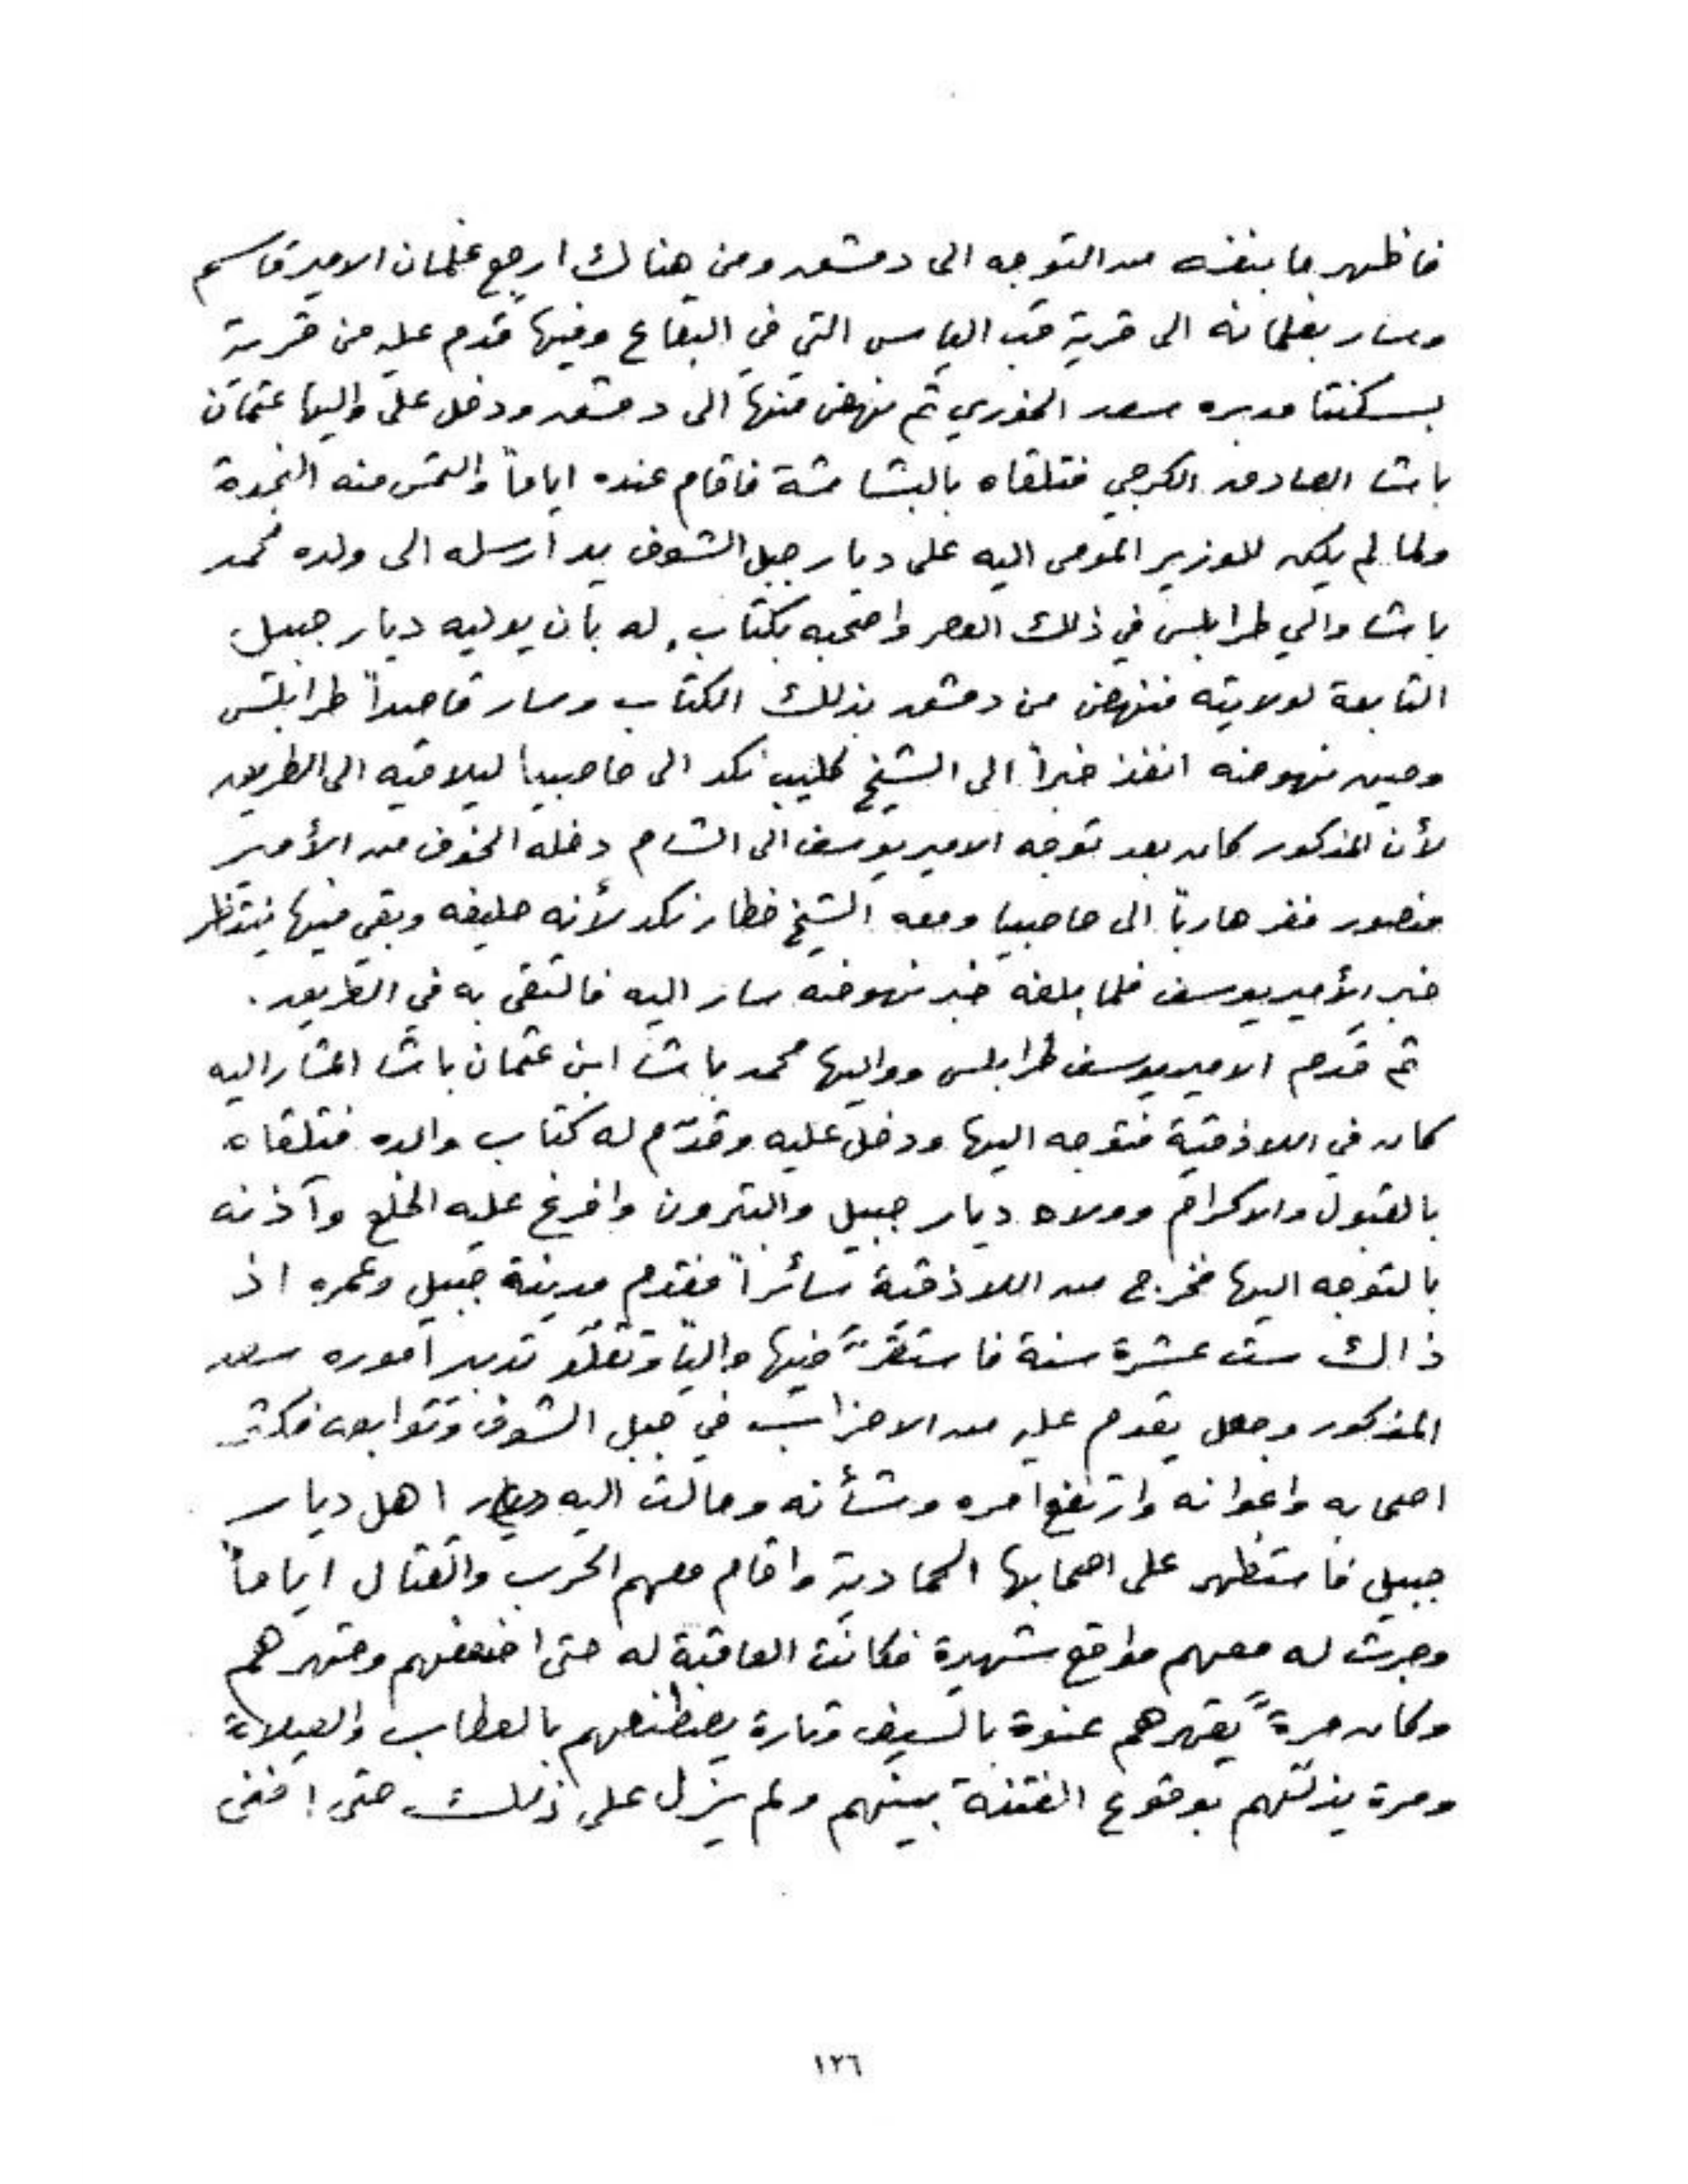 فاظهر ما بنفسه من التوجه الى دمشق ومن هناك ارجع غلمان الامير قاسم
وسار بغلمانه الى قرية قب الياس التي في البقاع وفيها قدم عليه من قرية
بسكنتا مدبره سعد الخوري ثم نهض منها الى دمشق ودخل على واليها عثمان
باشا الصادق الكرجي فتلقاه بالبشاشة فاقام عنده اياماً والتمس منه النجدة
ولما لم يكن للوزير المومى اليه على ديار جبل الشوف يد ارسله الى ولده محمد
باشا والي طرابلس في ذلك العصر واصحبه بكتاب له بان يوليه ديار جبيل
التابعة لولايته فنهض من دمشق بذلك الكتاب وسار قاصداً طرابلس
وحين نهوضه انفذ خبراً الى الشيخ كليب نكد الى حاصبيا ليلاقيه الى الطريق
لأن المذكور كان بعد توجه الامير يوسف الى الشام دخله الخوف من الأمير
منصور ففر هارباً الى حاصبيا ومعه الشيخ خطار نكد لأنه حليفه وبقي فيها ينتظر
خبر الأمير يوسف فلما بلغه خبر نهوضه سار اليه فالتقى به في الطريق .
ثم قدم الامير يوسف طرابلس وواليها محمد باشا ابن عثمان باشا المشار اليه
كان في اللاذقية فتوجه اليها ودخل عليه وقدّم له كتاب والده فتلقاه
بالقبول والاكرام وولاه ديار جبيل والبترون وافرغ عليه الخلع وآذنه
بالتوجه اليها فخرج من اللاذقية سائراً فقدم مدينة جبيل وعمره اذ
ذاك ست عشرة سنة فاستقرّ فيها والياً وتقلّد تدبير اموره سعد
المذكور وجعل يقدم عليه من الاحزاب في جبل الشوف وتوابعه فكثر
اصحابه واعوانه وارتفع امره وشأنه ومالت اليه اهل ديار
جبيل فاستظهر على اصحابها الحمادية واقام معهم الحرب والقتال اياماً
وجرت له معهم مواقع شهيرة فكانت العاقبة له حتى اضعفهم وقهرهم
وكان مرةً يقهرهم عنوة بالسيف وتارة يصطنعهم بالعطاب والصلاة
ومرة يذلّلهم بوقوع الفتنة بينهم ولم يزل على ذلك حتى افنى
١٢٦